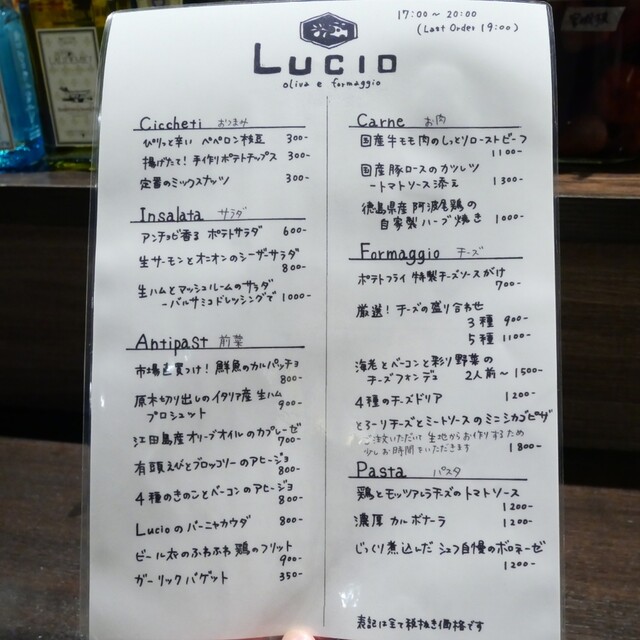 17:00〜20:00
(Last Order 19:00)
LUCIO
oliva e formaggio
Ciccheti おつまみ
ぴりっと辛い ペペロン枝豆 300-
揚げたて! 手作りポテトチップス 300-
定番のミックスナッツ 300-
Insalata サラダ
アンチョビ香る ポテトサラダ 600-
生サーモンとオニオンのシーザーサラダ
800-
生ハムとマッシュルームのサラダ
-バルサミコドレッシングで 1000-
Antipast 前菜
市場直買つけ! 鮮魚のカルパッチョ
800-
原木切り出しのイタリア産生ハム
プロシュット 900-
江田島産オリーブオイルのカプレーゼ
700-
有頭えびとブロッコリーのアヒージョ
800-
4種のきのことベーコンのアヒージョ
800-
Lucioのバーニャカウダ 800-
ビール衣のふわふわ鶏のフリット
900-
ガーリックバゲット 350-
Carne お肉
国産牛もも肉のしっとりローストビーフ
1100-
国産豚ロースのカツレツ
-トマトソース添え 1300-
徳島県産阿波尾鶏の
自家製ハーブ焼き 1000-
Formaggio チーズ
ポテトフライ 特製チーズソースがけ
700-
厳選! チーズの盛り合わせ
3種 900-
5種 1100-
海老とベーコンと彩り野菜の
チーズフォンデュ 2人前〜1500-
4種のチーズドリア 1200-
とろーりチーズとミートソースのミニシカゴピザ
ご注文いただいて生地からお作りするため
少しお時間をいただきます 1800-
Pasta パスタ
鶏とモッツアレラチーズのトマトソース
1200-
濃厚カルボナーラ 1200-
じっくり煮込んだ シェフ自慢のボロネーゼ
1200-
表記は全て税抜き価格です